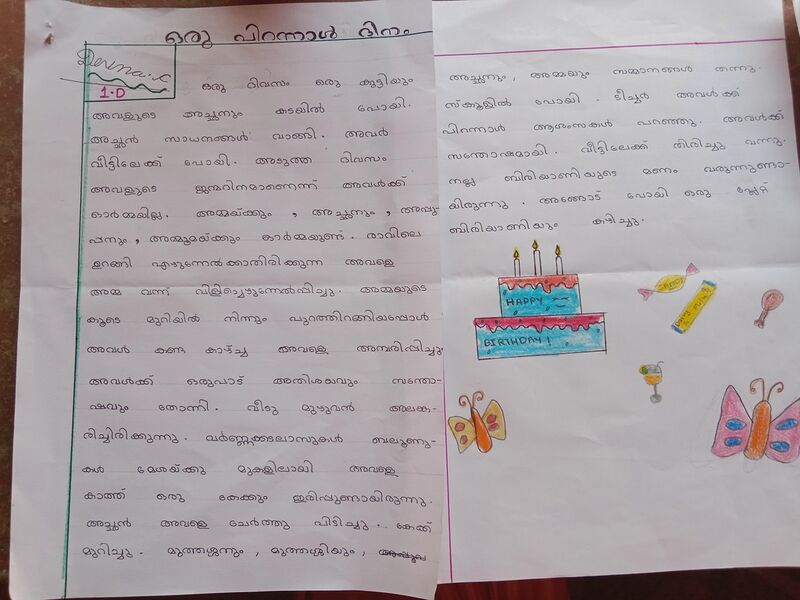 ഒരു പിറന്നാൾ ദിനം
1-D
ഒരു ദിവസം ഒരു കുട്ടിയും
അവളുടെ അച്ഛനും കടയിൽ പോയി.
അച്ഛൻ സാധനങ്ങൾ വാങ്ങി. അവർ
വീട്ടിലേക്ക് പോയി. അടുത്ത ദിവസം
അവളുടെ ജന്മദിനമാണെന്ന് അവൾക്ക്
ഓർമ്മയില്ല. അമ്മയ്ക്കും, അച്ഛനും, അപ്പൂ-
പ്പനും, അമ്മൂമയ്ക്കും ഓർമ്മയുണ്ട്. രാവിലെ
ഉറങ്ങി എഴുന്നേൽക്കാതിരിക്കുന്ന അവളെ
അമ്മ വന്ന് വിളിച്ചെഴുന്നേൽപ്പിച്ചു. അമ്മയുടെ
കൂടെ മുറിയിൽ നിന്നും പുറത്തിറങ്ങിയപ്പോൾ
അവൾ കണ്ട കാഴ്ച്ച അവളെ അമ്പരിപ്പിച്ചു
അവൾക്ക് ഒരുപാട് അതിശയവും സന്തോ-
ഷവും തോന്നി. വീടു മുഴുവൻ അലങ്ക-
രിച്ചിരിക്കുന്നു. വർണ്ണക്കടലാസുകൾ ബലൂണു-
കൾ മേശയ്ക്കു മുകളിലായി അവളെ
കാത്ത് ഒരു കേക്കും ഇരിപ്പുണ്ടായിരുന്നു.
അച്ഛൻ അവളെ ചേർത്തു പിടിച്ചു. കേക്ക്
മുറിച്ചു. മുത്തശ്ശനും, മുത്തശ്ശിയും,
അച്ഛനും, അമ്മയും സമ്മാനങ്ങൾ തന്നു.
സ്കൂളിൽ പോയി. ടീച്ചർ അവൾക്ക്
പിറന്നാൾ ആശംസകൾ പറഞ്ഞു. അവൾക്ക്
സന്തോഷമായി. വീട്ടിലേക്ക് തിരിച്ചു വന്നു.
നല്ല ബിരിയാണിയുടെ മണം വരുന്നുണ്ടാ-
യിരുന്നു. അങ്ങോട് പോയി ഒരു പ്ലേറ്റ്
ബിരിയാണിയും കഴിച്ചു.
HAPPY
BIRTHDAY!
CANDY
DAIRY MILK